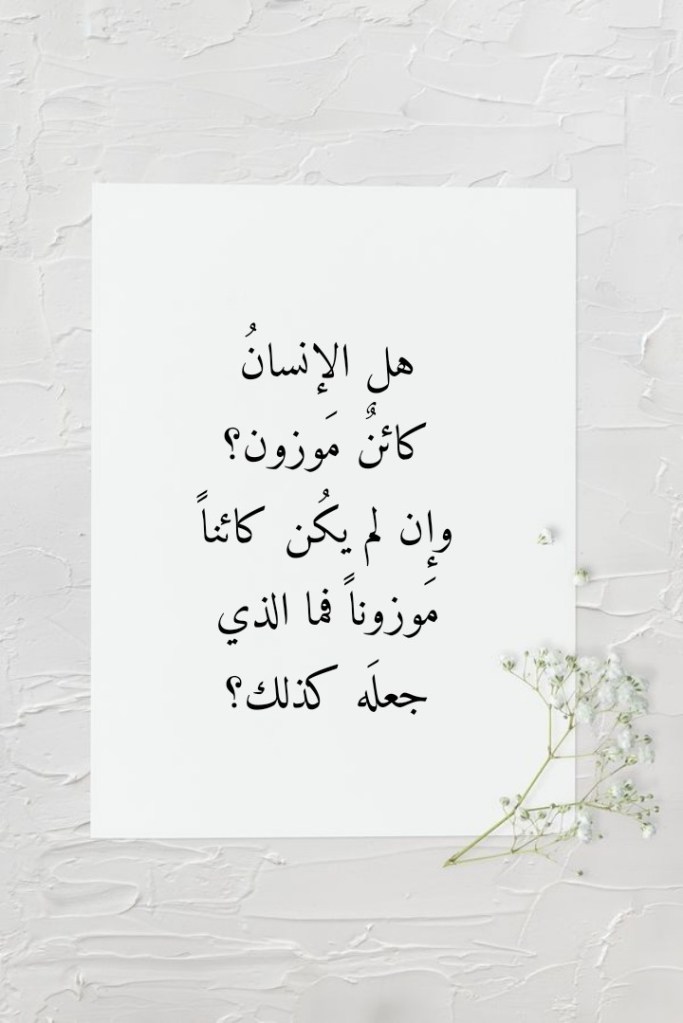 هل الإنسانُ
كائنٌ مَوزون؟
وإن لم يكُن كائناً
مَوزوناً فما الذي
جعلَه كذلك؟